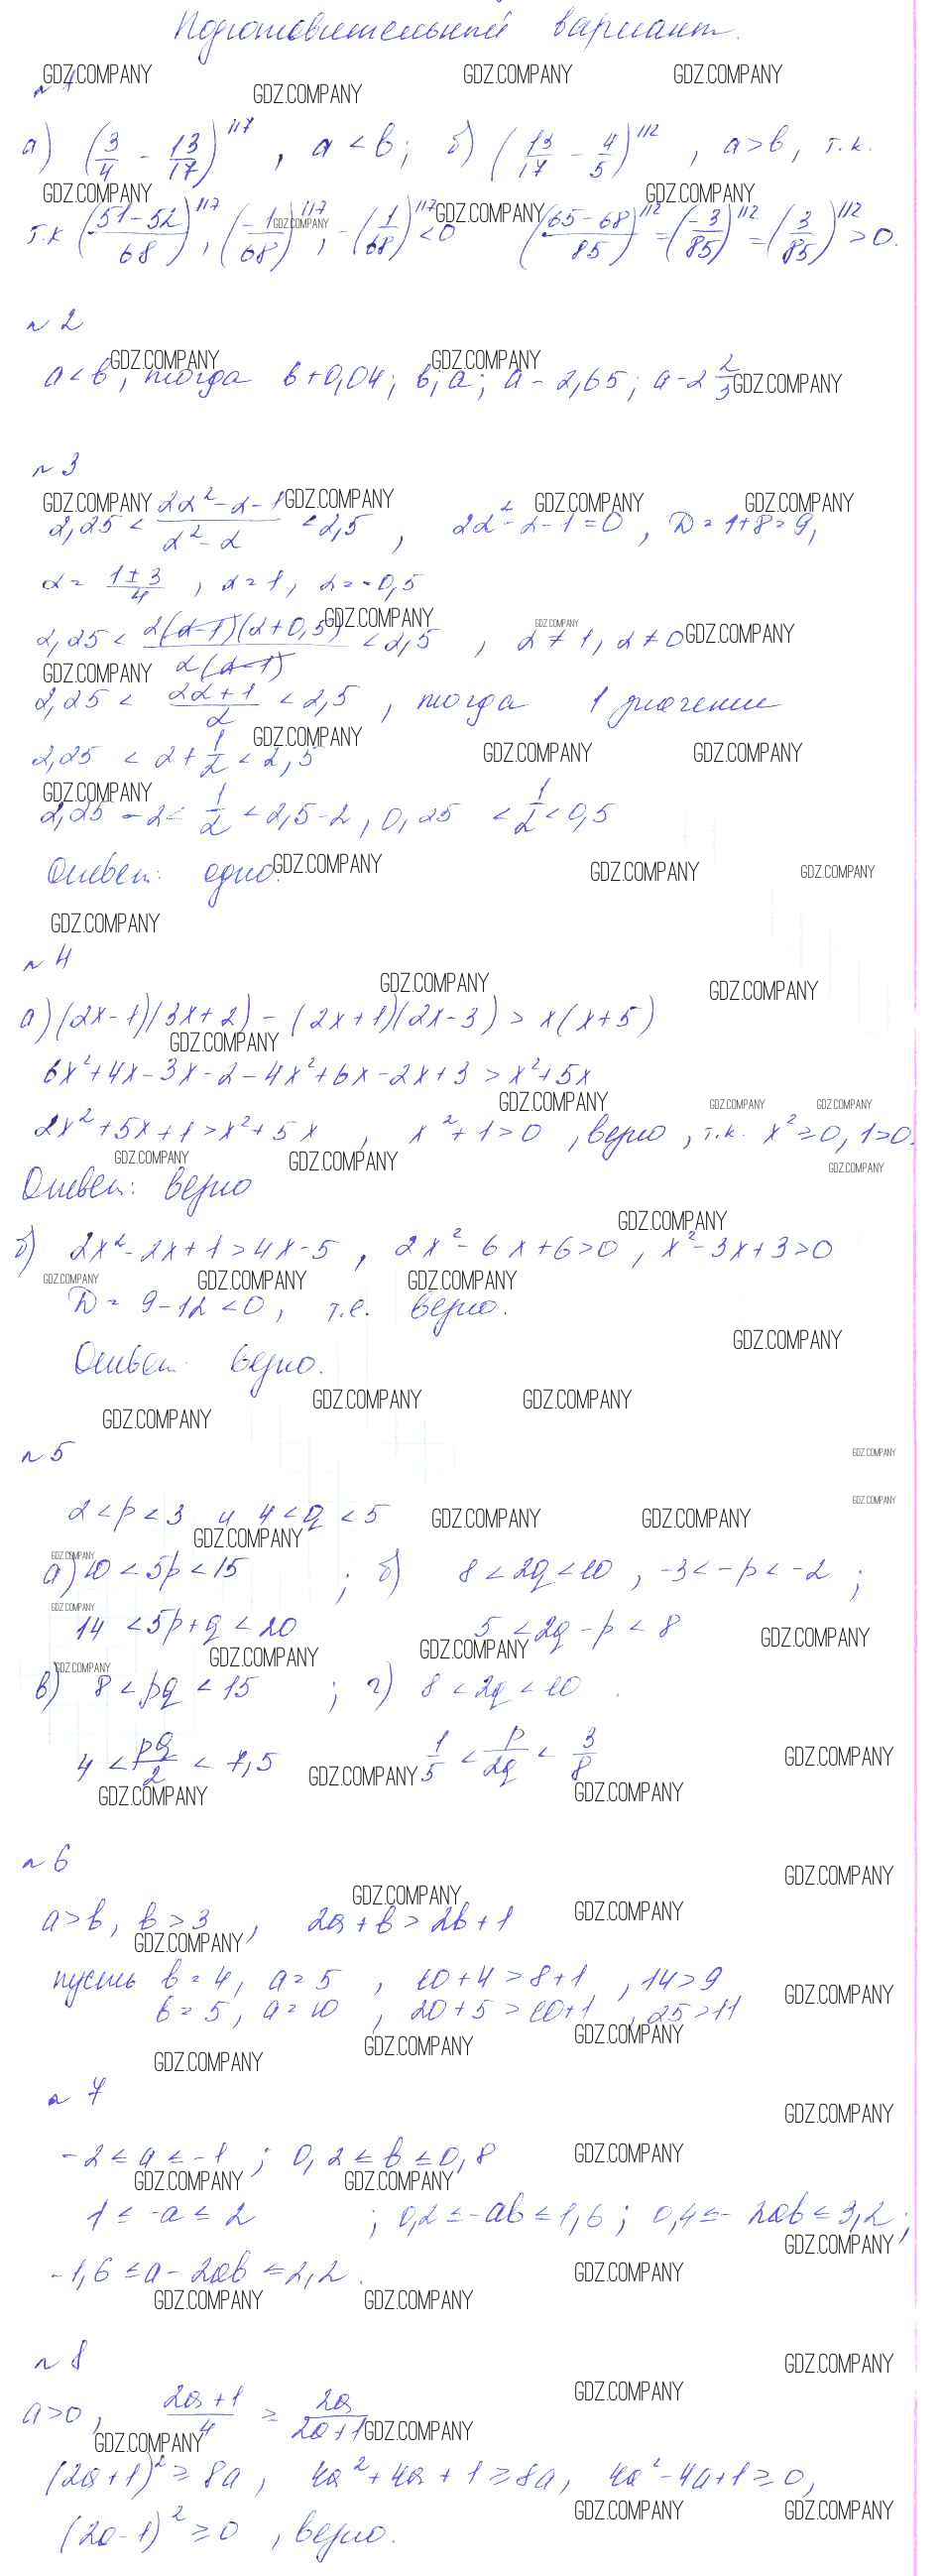 Подготовительный вариант.
GDZ.COMPANY GDZ.COMPANY GDZ.COMPANY
GDZ.COMPANY
№ 1
а) (3/4 - 13/17)^117, a < b; б) (13/17 - 4/5)^112, a > b, т.к.
GDZ.COMPANY GDZ.COMPANY
т.к ((51-52)/68)^117, (-1/68)^117, -(1/68)^117 < 0 ((65-68)/85)^112 = (-3/85)^112 = (3/85)^112 > 0.
GDZ.COMPANY GDZ.COMPANY
№ 2
GDZ.COMPANY GDZ.COMPANY
a < b, тогда b+0,04; b; a; a - 2,65; a - 2 2/3
GDZ.COMPANY
№ 3
GDZ.COMPANY GDZ.COMPANY GDZ.COMPANY GDZ.COMPANY
2,25 < (2α² - α - 1)/(α² - α) < 2,5, 2α² - α - 1 = 0, D = 1+8 = 9,
α = (1±3)/4, α = 1, α = -0,5
GDZ.COMPANY GDZ.COMPANY GDZ.COMPANY
2,25 < 2(α-1)(α+0,5)/(α(α-1)) < 2,5, α ≠ 1, α ≠ 0
GDZ.COMPANY
2,25 < (2α+1)/α < 2,5, тогда 1 значение
GDZ.COMPANY GDZ.COMPANY GDZ.COMPANY
2,25 < 2 + 1/α < 2,5
GDZ.COMPANY
2,25 - 2 < 1/α < 2,5 - 2, 0,25 < 1/α < 0,5
Ответ: одно.
GDZ.COMPANY GDZ.COMPANY GDZ.COMPANY
GDZ.COMPANY
№ 4
GDZ.COMPANY GDZ.COMPANY
а) (2x-1)(3x+2) - (2x+1)(2x-3) > x(x+5)
GDZ.COMPANY
6x²+4x-3x-2-4x²+6x-2x+3 > x²+5x
GDZ.COMPANY GDZ.COMPANY GDZ.COMPANY
2x²+5x+1 > x²+5x, x²+1>0, верно, т.к. x²≥0, 1>0.
GDZ.COMPANY GDZ.COMPANY GDZ.COMPANY
Ответ: верно
GDZ.COMPANY
б) 2x²-2x+1 > 4x-5, 2x²-6x+6>0, x²-3x+3>0
GDZ.COMPANY GDZ.COMPANY GDZ.COMPANY
D = 9-12 <0, т.е. верно.
GDZ.COMPANY
Ответ: верно.
GDZ.COMPANY GDZ.COMPANY
GDZ.COMPANY
№ 5
GDZ.COMPANY
GDZ.COMPANY
2 < p < 3 и 4 < q < 5
GDZ.COMPANY GDZ.COMPANY
GDZ.COMPANY
GDZ.COMPANY
а) 10 < 5p < 15; б) 8 < 2q < 10, -3 < -p < -2;
GDZ.COMPANY
14 < 5p+q < 20 5 < 2q - p < 8
GDZ.COMPANY GDZ.COMPANY GDZ.COMPANY
GDZ.COMPANY
в) 8 < pq < 15; г) 8 < 2q < 10.
4 < pq/2 < 7,5 1/5 < p/2q < 3/8
GDZ.COMPANY GDZ.COMPANY
GDZ.COMPANY GDZ.COMPANY
№ 6
GDZ.COMPANY
GDZ.COMPANY GDZ.COMPANY
a > b, b > 3, 2a + b > 2b + 1
GDZ.COMPANY
пусть b = 4, a = 5, 10+4 > 8+1, 14 > 9
GDZ.COMPANY
b = 5, a = 10, 20+5 > 10+1, 25 > 11
GDZ.COMPANY GDZ.COMPANY
GDZ.COMPANY
№ 7
GDZ.COMPANY
-2 ≤ a ≤ -1; 0,2 ≤ b ≤ 0,8
GDZ.COMPANY
GDZ.COMPANY GDZ.COMPANY
1 ≤ -a ≤ 2; 0,2 ≤ -ab ≤ 1,6; 0,4 ≤ -2ab ≤ 3,2;
GDZ.COMPANY
-1,6 ≤ a - 2ab ≤ 2,2.
GDZ.COMPANY
GDZ.COMPANY GDZ.COMPANY
№ 8
GDZ.COMPANY
GDZ.COMPANY
a > 0, (2a+1)/4 ≥ 2a/(2a+1)
GDZ.COMPANY GDZ.COMPANY
(2a+1)² ≥ 8a, 4a²+4a+1 ≥ 8a, 4a²-4a+1 ≥ 0,
GDZ.COMPANY GDZ.COMPANY
(2a-1)² ≥ 0, верно.